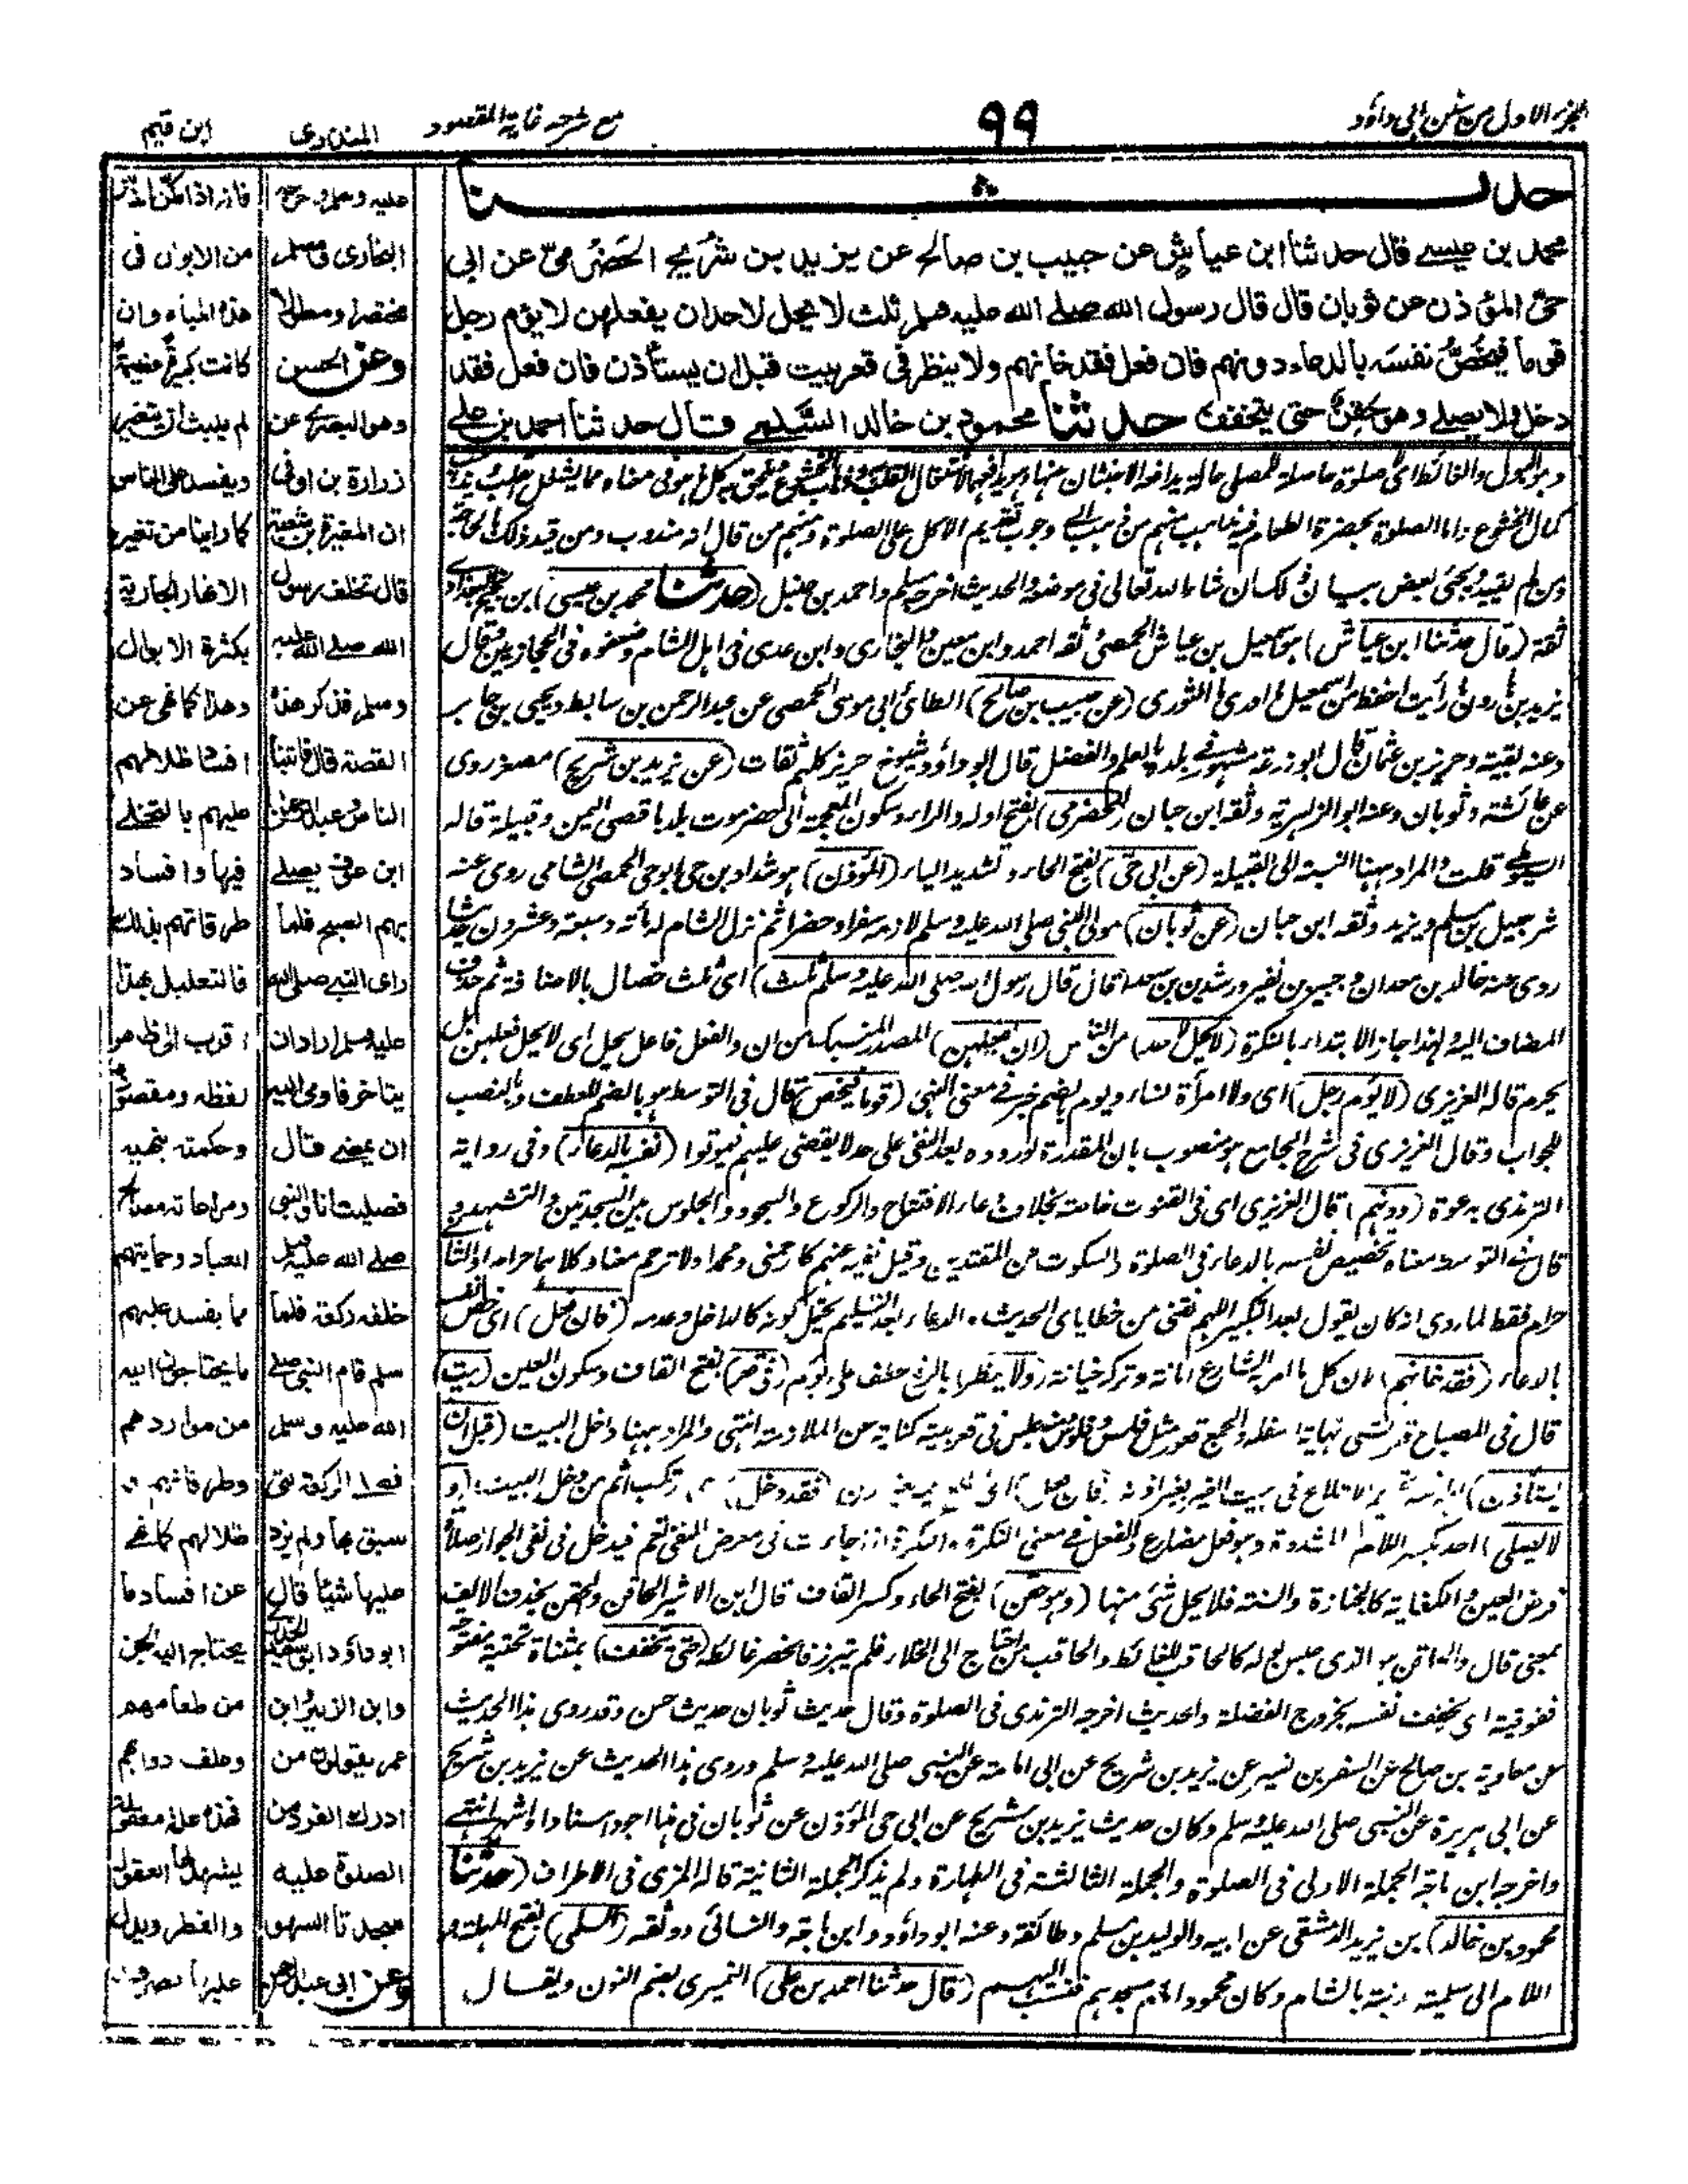 الجزء الاول من سنن ابی داؤد
٩٩
مع شرحه غایة المقصود
المنذری
ابن قیم
حدثنا
محمد بن عیسے قال حدثنا ابن عیاش عن حبیب بن صالح عن یزید بن شریح الحضرمی عن ابی
حی المؤذن عن ثوبان قال قال رسول الله صلے الله علیه وسلم ثلث لا یحل لاحد ان یفعلهن لا یؤم رجل
قوما فیخص نفسه بالدعاء دونهم فان فعل فقد خانهم ولا ینظر فی قعر بیت قبل ان یستأذن فان فعل فقد
دخل ولا یصلے وهو حقن حتی یتخفف حدثنا محمود بن خالد السلمے قال حدثنا احمد بن علے
کمال الخشوع واما الصلوة بحضرة الطعام فیه مذاهب منهم من ذهب الی وجوب تقدیم الاکل علی الصلوة ومنهم من قال انه مندوب ومن قید ذلک بالحاجة
ومن لم یقید یجئ بعض بیان ذلک ان شاء الله تعالی فی موضعه والحدیث اخرجه مسلم واحمد بن حنبل (حدثنا محمد بن عیسی) ابن نجیح البغدادی
ثقة (قال حدثنا ابن عیاش) هو اسمعیل بن عیاش الحمصی وثقه احمد وابن معین والبخاری وابن عدی فی اهل الشام وضعفوه فی الحجازیین قال
یزید بن هارون ما رأیت احفظ من اسمعیل ما ادری ما الثوری (عن حبیب بن صالح) الطائی ابی موسی الحمصی عن عبد الرحمن بن سابط ویحیی بن جابر
وعنه بقیة وحریز بن عثمان قال ابو زرعة مشهور فی بلده بالعلم والفضل قال ابو داؤد شیوخ حریز کلهم ثقات (عن یزید بن شریح) مصغر روی
عن عائشة وثوبان وعنه ابو الزاهریة وثقه ابن حبان (الحضرمی) بفتح اوله والراء وسکون المعجمة الی حضرموت بلد باقصی الیمن وقبیلة قاله
السیوطے قلت والمراد ههنا النسبة الی القبیلة (عن ابی حی) بفتح الحاء وتشدید الیاء (المؤذن) هو شداد بن حی ابو حی الحمصی الشامی روی عنه
شرحبیل بن مسلم ویزید وثقه ابن حبان (عن ثوبان) مولی النبی صلی الله علیه وسلم لازمه سفرا وحضرا ثم نزل الشام له مأته وسبعة وعشرون حدیثا
روی عنه خالد بن معدان وجبیر بن نفیر ورشدین بن سعد (قال قال رسول الله صلی الله علیه وسلم ثلث) ای ثلث خصال بالاضافة ثم حذف
المضاف الیه ولهذا جاز الابتداء بالنکرة (لا یحل لاحد) من الناس (ان یفعلهن) المصدر المنسبک من ان والفعل فاعل یحل ای لا یحل فعلهن بل
یحرم قاله العزیزی (لا یؤم رجل) ای ولا امرأة لنساء ویوم بالضم خبر فی معنی النهی (قوما فیخص) قال فی التوسط هو بالضم للعطف وبالنصب
للجواب وقال العزیزی فی شرح الجامع هو منصوب بان المقدرة لوروده بعد النفی علی حد لا یقضی علیهم فیموتوا (نفسه بالدعاء) وفی روایة
الترمذی بدعوة (دونهم) قال العزیزی ای فی القنوت خاصة بخلاف دعاء الافتتاح والرکوع والسجود والجلوس بین السجدتین والتشهد و
قال فی التوسط معناه تخصیص نفسه بالدعاء فی الصلوة والسکوت عن المقتدین وقیل نفیه عنهم کارحمنی ومحمدا ولا ترحم معنا وکلاهما حرام او الثانی
حرام فقط لما روی انه کان یقول بعد التکبیر اللهم نقنی من خطایای الحدیث والدعاء بعد التسلیم یحتمل کونه کالداخل وعدمه (فان فعل) ای خص نفسه
بالدعاء (فقد خانهم) لان کل ما امر به الشارع امانة وترکه خیانة (ولا ینظر) بالرفع عطف علی یؤم (فی قعر) بفتح القاف وسکون العین (بیت)
قال فی المصباح قعر الشی نهایة اسفله والجمع قعور مثل فلس وفلوس ومنه جلس فی قعر بیته کنایة عن الملازمة انتهی والمراد ههنا داخل البیت (قبل ان
یستأذن) اهله فیه تحریم الاطلاع فی بیت الغیر بغیر اذنه (فان فعل) ای اطلع فیه بغیر اذن (فقد دخل) ای ارتکب اثم من دخل البیت (و
لا یصلی) احد بکسر اللام المشددة وهو فعل مضارع والفعل فی معنی النکرة والنکرة اذا جاءت فی معرض النفی تعم فیدخل فی نفی الجواز صلاة
فرض العین والکفایة کالجنازة والسنة فلا یحل شئ منها (وهو حقن) بفتح الحاء وکسر القاف قال ابن الاثیر الحاقن والحقن بحذف الالف
بمعنی قال والحاقن هو الذی حبس بوله کالحاقب للغائط والحاقب من احتاج الی الخلاء فلم یتبرز فانحصر غائطه (حتی یتخفف) بمثناة تحتیة مفتوحة
ففوقیة ای یخفف نفسه بخروج الفضلة والحدیث اخرجه الترمذی فی الصلوة وقال حدیث ثوبان حدیث حسن وقد روی هذا الحدیث
عن معاویة بن صالح عن السفر بن نسیر عن یزید بن شریح عن ابی امامة عن النبی صلی الله علیه وسلم وروی هذا الحدیث عن یزید بن شریح
عن ابی هریرة عن النبی صلی الله علیه وسلم وکان حدیث یزید بن شریح عن ابی حی المؤذن عن ثوبان فی هذا اجود اسنادا واشهر انتهے
واخرجه ابن ماجة الجملة الاولی فی الصلوة والجملة الثالثة فی الطهارة ولم یذکر الجملة الثانیة قاله المزی فی الاطراف (حدثنا
محمود بن خالد) بن یزید الدمشقی عن ابیه والولید بن مسلم وطائفة وعنه ابو داؤد وابن ماجة والنسائی ووثقه (السلمی) بفتح المهملة و
اللام الی سلمیة مدینة بالشام وکان محمود امام مسجدهم فنسب الیهم (قال حدثنا احمد بن علی) النمیری بضم النون ویقال
علیه وسلم واخرجه
البخاری ومسلم
مختصرا ومطولا
وعن الحسن
وهو البصری عن
زرارة بن اوفی
ان المغیرة بن شعبة
قال تخلف رسول
الله صلے الله علیه
وسلم فذکر هذه
القصة قال فاتینا
الناس وعبد الرحمن
ابن عوف یصلے
بهم الصبح فلما
رای النبے صلی الله
علیه وسلم اراد ان
یتاخر فاومی الیه
ان یمضے قال
فصلیت انا والنبی
صلے الله علیه وسلم
خلفه رکعة فلما
سلم قام النبی صلے
الله علیه وسلم
فصلے الرکعة التی
سبق بها ولم یزد
علیها شیئا قال
ابو داؤد ابو سعید الخدری
وابن الزبیر وابن
عمر یقولون من
ادرک الفرد من
الصلوة علیه
سجدتا السهو
وعن ابی عبد الرحمن
من الابوال فی
هذه المیاه وان
کانت کبیرة عظیمة
لم یلبث ان تتغیر
ویفسد علی الناس
کما رأینا من تغیر
الانهار الجاریة
بکثرة الابوال
وهذا کما نهی عن
افساد ظلالهم
علیهم بالتخلے
فیها وافساد
طرقاتهم بذلک
فالتعلیل بهذا
اقرب الی ظاهر
لفظه ومقصوده
وحکمته بنهیه
ومراعاته مصالح
العباد وحمایتهم
مما یفسد علیهم
ما یحتاجون الیه
من مواردهم
وطرقاتهم و
ظلالهم کما نهے
عن افساد ما
یحتاج الیه الجن
من طعامهم
وعلف دوابهم
فهذه علة معقولة
یشهد لها العقول
والفطر ویدل
علیها تصرف